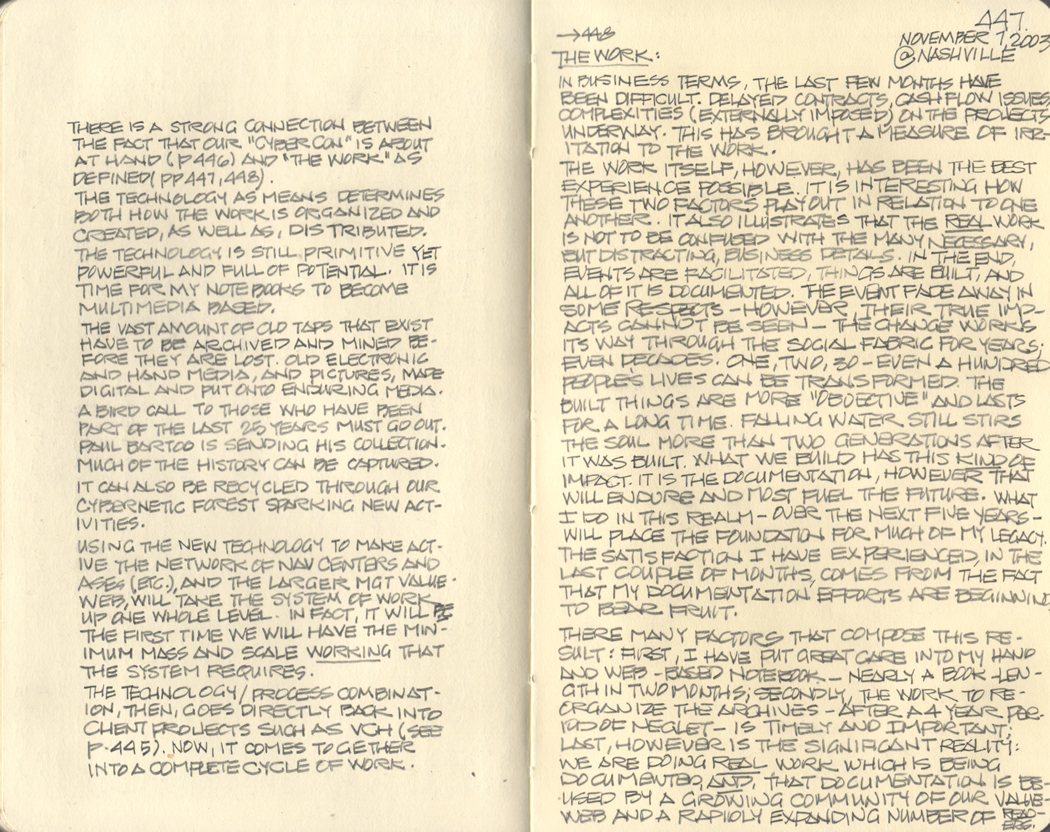 THERE IS A STRONG CONNECTION BETWEEN
THE FACT THAT OUR "CYBER CON" IS ABOUT
AT HAND (P 446) AND "THE WORK" AS
DEFINED (PP 447, 448).
THE TECHNOLOGY AS MEANS DETERMINES
BOTH HOW THE WORK IS ORGANIZED AND
CREATED, AS WELL AS, DISTRIBUTED.
THE TECHNOLOGY IS STILL PRIMITIVE YET
POWERFUL AND FULL OF POTENTIAL. IT IS
TIME FOR MY NOTE BOOKS TO BECOME
MULTIMEDIA BASED.
THE VAST AMOUNT OF OLD TAPS THAT EXIST
HAVE TO BE ARCHIVED AND MINED BE-
FORE THEY ARE LOST. OLD ELECTRONIC
AND HAND MEDIA, AND PICTURES, MADE
DIGITAL AND PUT ONTO ENDURING MEDIA.
A BIRD CALL TO THOSE WHO HAVE BEEN
PART OF THE LAST 25 YEARS MUST GO OUT.
PAUL BARTOO IS SENDING HIS COLLECTION.
MUCH OF THE HISTORY CAN BE CAPTURED.
IT CAN ALSO BE RECYCLED THROUGH OUR
CYBERNETIC FOREST SPARKING NEW ACT-
IVITIES.
USING THE NEW TECHNOLOGY TO MAKE ACT-
IVE THE NETWORK OF NAV CENTERS AND
ASES (ETC.), AND THE LARGER MGT VALUE-
WEB, WILL TAKE THE SYSTEM OF WORK
UP ONE WHOLE LEVEL. IN FACT, IT WILL BE
THE FIRST TIME WE WILL HAVE THE MIN-
IMUM MASS AND SCALE WORKING THAT
THE SYSTEM REQUIRES.
THE TECHNOLOGY/PROCESS COMBINAT-
ION, THEN, GOES DIRECTLY BACK INTO
CLIENT PROJECTS SUCH AS VCH (SEE
P. 445). NOW, IT COMES TOGETHER
INTO A COMPLETE CYCLE OF WORK.
447.
→448
NOVEMBER 7, 2003
@ NASHVILLE
THE WORK:
IN BUSINESS TERMS, THE LAST FEW MONTHS HAVE
BEEN DIFFICULT. DELAYED CONTRACTS, CASH FLOW ISSUES,
COMPLEXITIES (EXTERNALLY IMPOSED) ON THE PROJECTS
UNDERWAY. THIS HAS BROUGHT A MEASURE OF IRR-
ITATION TO THE WORK.
THE WORK ITSELF, HOWEVER, HAS BEEN THE BEST
EXPERIENCE POSSIBLE. IT IS INTERESTING HOW
THESE TWO FACTORS PLAY OUT IN RELATION TO ONE
ANOTHER. IT ALSO ILLUSTRATES THAT THE REAL WORK
IS NOT TO BE CONFUSED WITH THE MANY, NECESSARY,
BUT DISTRACTING, BUSINESS DETAILS. IN THE END,
EVENTS ARE FACILITATED, THINGS ARE BUILT, AND
ALL OF IT IS DOCUMENTED. THE EVENT FADE AWAY IN
SOME RESPECTS - HOWEVER, THEIR TRUE IMP-
ACTS CANNOT BE SEEN - THE CHANGE WORKS
IT'S WAY THROUGH THE SOCIAL FABRIC FOR YEARS;
EVEN DECADES. ONE, TWO, 30 - EVEN A HUNDRED
PEOPLE'S LIVES CAN BE TRANSFORMED. THE
BUILT THINGS ARE MORE "OBJECTIVE" AND LASTS
FOR A LONG TIME. FALLING WATER STILL STIRS
THE SOUL MORE THAN TWO GENERATIONS AFTER
IT WAS BUILT. WHAT WE BUILD HAS THIS KIND OF
IMPACT. IT IS THE DOCUMENTATION, HOWEVER THAT
WILL ENDURE AND MOST FUEL THE FUTURE. WHAT
I DO IN THIS REALM - OVER THE NEXT FIVE YEARS -
WILL PLACE THE FOUNDATION FOR MUCH OF MY LEGACY.
THE SATISFACTION I HAVE EXPERIENCED, IN THE
LAST COUPLE OF MONTHS, COMES FROM THE FACT
THAT MY DOCUMENTATION EFFORTS ARE BEGINNING
TO BEAR FRUIT.
THERE MANY FACTORS THAT COMPOSE THIS RE-
SULT: FIRST, I HAVE PUT GREAT CARE INTO MY HAND
AND WEB-BASED NOTEBOOK - NEARLY A BOOK LEN-
GTH IN TWO MONTHS; SECONDLY, THE WORK TO RE-
ORGANIZE THE ARCHIVES - AFTER A 4 YEAR PER-
IOD OF NEGLET - IS TIMELY AND IMPORTANT;
LAST, HOWEVER IS THE SIGNIFICANT REALITY:
WE ARE DOING REAL WORK WHICH IS BEING
DOCUMENTED, AND, THAT DOCUMENTATION IS BE-
USED BY A GROWING COMMUNITY OF OUR VALUE-
WEB AND A RAPIDLY EXPANDING NUMBER OF READ-
ERS.